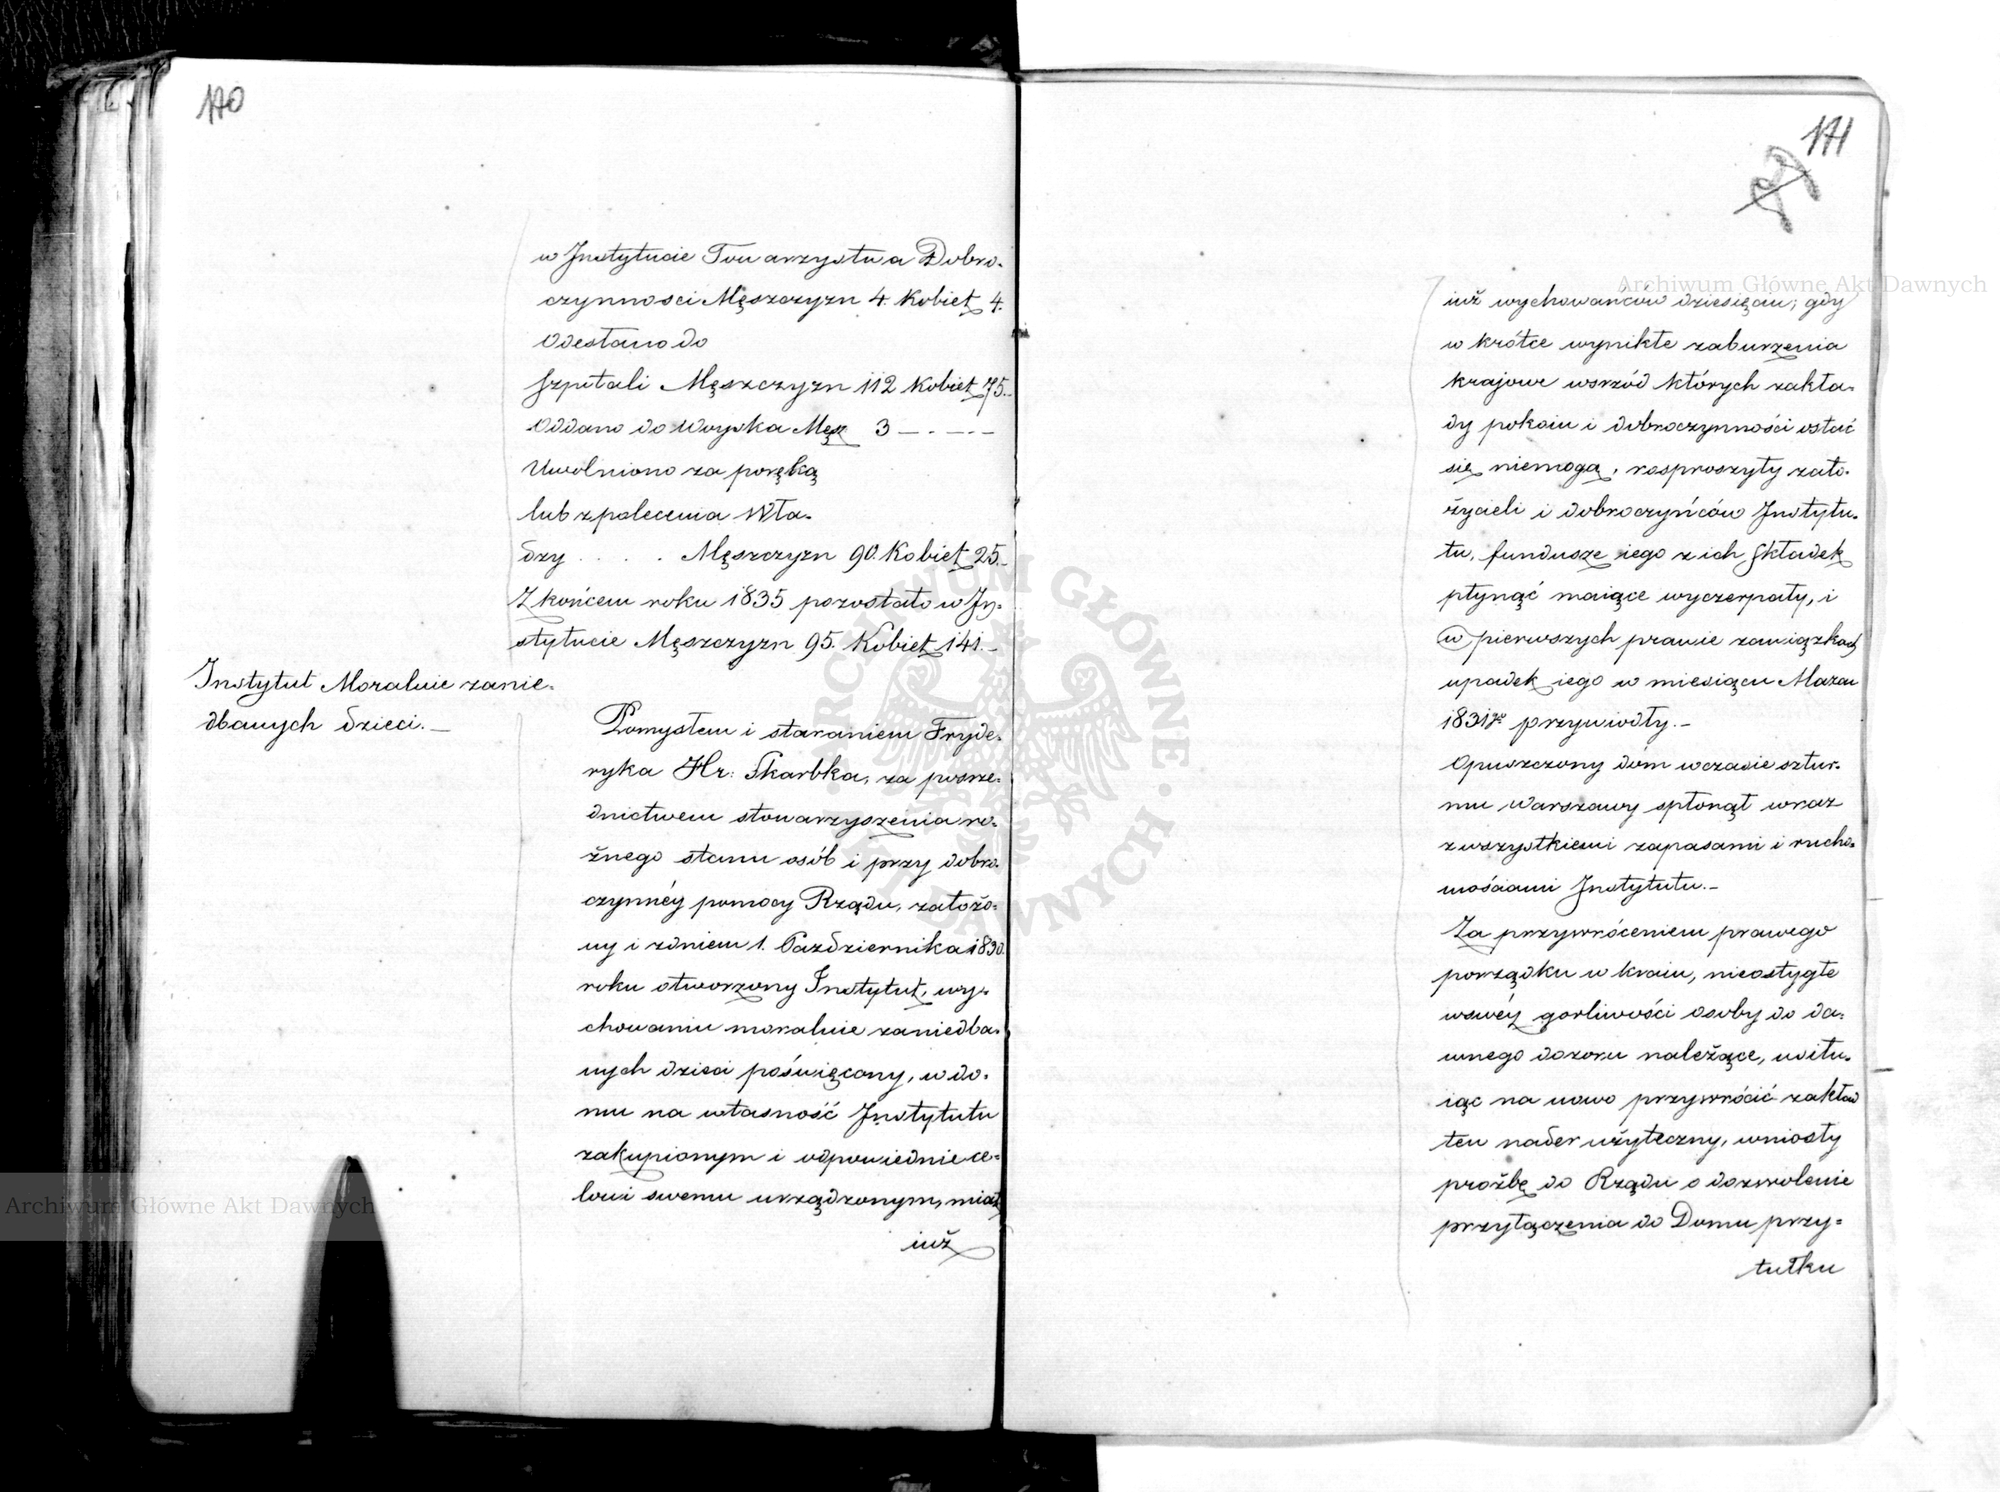 170
w Instytucie Towarzystwa Dobro-
czynnosci Męszczyzn 4. Kobiet 4.
Odesłano do
szpitali Męszczyzn 112 Kobiet 75.-
Oddano do Woyska Męz 3 — . — . —
Uwolniono za poręką
lub z polecenia Wła-
dzy . . . . Męszczyzn 90. Kobiet 25.-
Z końcem roku 1835 pozostało w In-
stytucie Męszczyzn 95. Kobiet 141.-
Instytut Moralnie zanie-
dbanych dzieci.-
Pomysłem i staraniem Fryde-
ryka Hr: Skarbka, za posre-
dnictwem stowarzyszenia ro-
żnego stanu osób i przy dobro-
czynnéy pomocy Rządu, założo-
ny i zdniem 1. Pazdziernika 1830.
roku otworzony Instytut, wy-
chowaniu moralnie zaniedba-
nych dzieci poświęcony, w do-
mu na własność Instytutu
zakupionym i odpowiednie ce-
lowi swemu urządzonym, miał
iuż
171
iuż wychowańców dziesięciu; gdy
w krótce wynikłe zaburzenia
krajowe wsrzód których zakła-
dy pokoiu i dobroczynności ostać
się niemogą, rosproszyły zało-
życieli i dobroczyńców Instytu-
tu, fundusze iego z ich składek
płynąć maiące wyczerpały, i
w pierwszych prawie zawiązkach
upadek iego w miesiącu Marcu
1831go przywiodły.-
Opuszczony dóm wczasie sztur-
mu Warszawy spłonął wraz
z wszystkiemi zapasami i rucho-
mościami Instytutu.-
Za przywróceniem prawego
porządku w kraiu, nieostygłe
wswéy gorliwości osoby do da-
wnego dozoru należące, usiłu-
iąc na nowo przywrócić zakład
ten nader użyteczny, wniosły
proźbę do Rządu o dozwolenie
przyłączenia do Domu przy-
tułku
Archiwum Główne Akt Dawnych
Archiwum Główne Akt Dawnych
ARCHIWUM GŁÓWNE AKT DAWNYCH